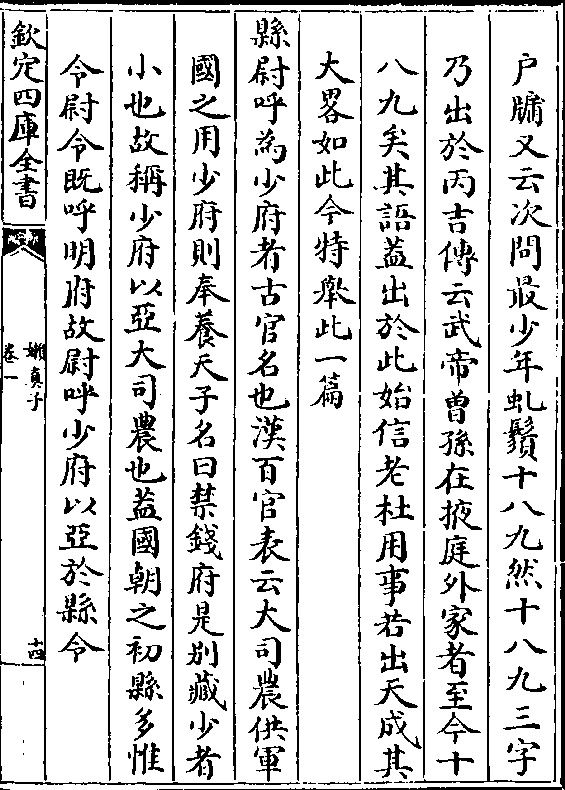 户牖又云次問最少年虬鬚十八九然十八九三字
乃出於丙吉傳云武帝曽孫在掖庭外家者至今十
八九矣其語葢出於此始信老杜用事若出天成其
大畧如此今特舉此一篇
縣尉呼為少府者古官名也漢百官表云大司農供軍
國之用少府則奉養天子名曰禁錢府是别藏少者
小也故稱少府以亞大司農也葢國朝之初縣多惟
令尉令既呼明府故尉呼少府以亞於縣令
欽定四庫全書
嬾真子
卷一
十四